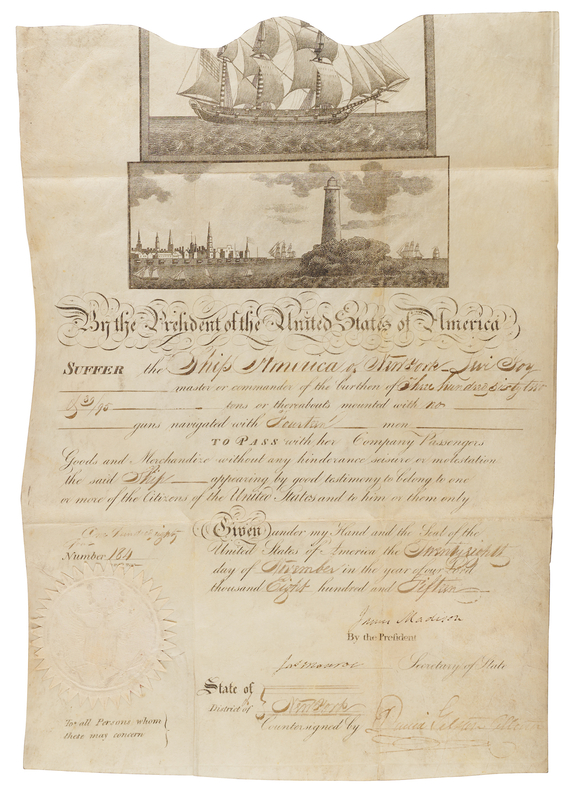 By the President of the United States of America
SUFFER the Ship America of New York
master or commander of the burthen of Three hundred sixty two
/95 tons or thereabouts mounted with no
guns navigated with Fourteen men
TO PASS with her Company Passengers
Goods and Merchandize without any hinderance seisure or molestation
the said Ship appearing by good testimony to belong to one
or more of the Citizens of the United States and to him or them only
Given under my Hand and the Seal of the
United States of America the Twenty eighth
day of November in the year of our Lord
thousand Eight hundred and Fifteen
Number
James Madison
By the President
Jas Monroe Secretary of State
State of
District of New York
Countersigned by David Gelston
To all Persons whom
these may concern